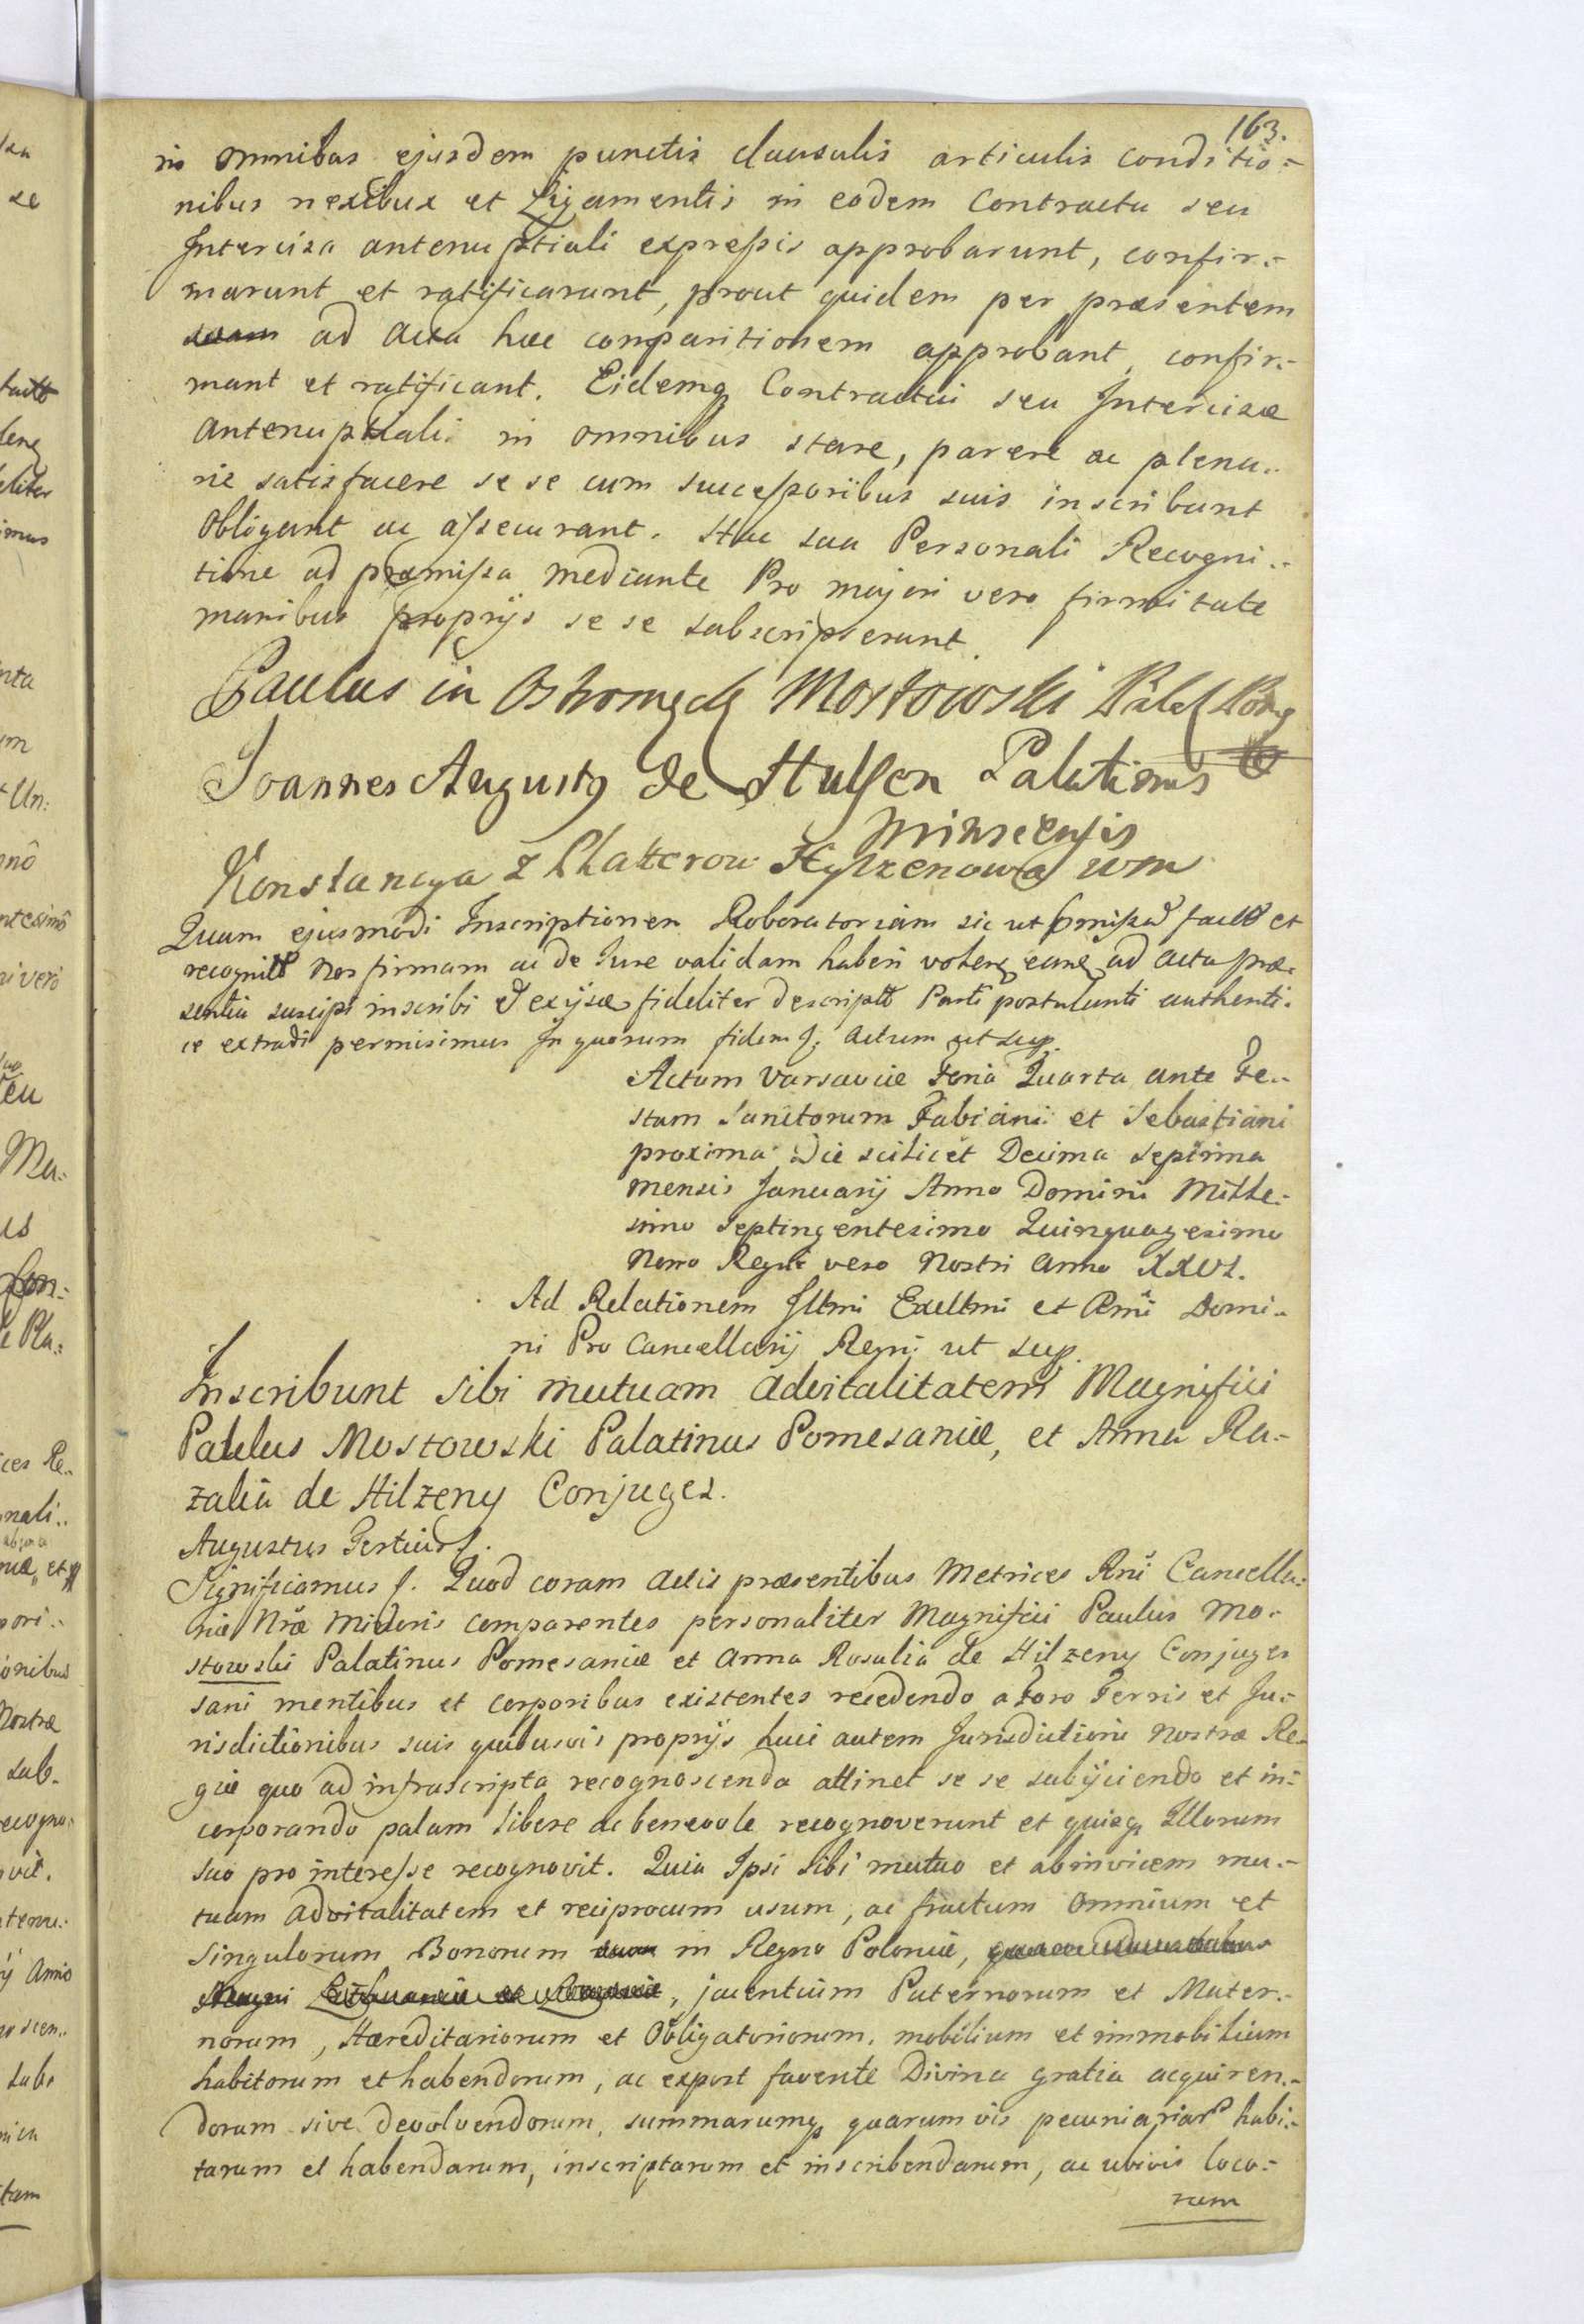 163.
in omnibus ejusdem punctis clausulis articulis conditio:-
nibus nexibus et Ligamentis in eodem Contractu seu
Intercisa antenuptiali expressis approbarunt, confir:-
marunt et ratificarunt, prout quidem per præsentem
suam ad acta hæc comparitionem approbant, confir:-
mant et ratificant. Eidemq Contractui seu Intercisæ
antenuptiali in omnibus stare, parere ac plena:-
rie satisfacere se se cum successoribus suis inscribunt
obligant ac assecurant. Hac sua Personali Recogni:-
tione ad præmissa mediante Pro majori vero firmitate
manibus proprijs se se subscripserunt.
Paulus in Ostromęck Mostowski
Joannes Augustq de Hulsen Palatinus
Minscensis
Konstancya z Platterow Hylzenowa wm
Quam ejusmodi Inscriptionem Roboratoriam sic ut pmissũ factã et
recognitã Nos firmam ac de Iure validam haberi volenq eanq ad acta præ-
sentia suscipi inscribi et exijsdē fideliter descriptã Parti postulanti authenti:
ce extradi permisimus In quorum fidem f. Actum ut sup.
Actum Varsaviæ Feria Quarta ante Fe:-
stum Sanctorum Fabiani et Sebastiani
proxima Die scilicet Decima Septima
mensis Januarij Anno Domini Mille:-
simo Septingentesimo Quinquagesimo
Nono Regni vero Nostri anno XXVI.
Ad Relationem Illmi Exellmi et Rmi Domi:-
ni Pro Cancellarij Regni ut sup.
Inscribunt sibi mutuam advitalitatem Magnifici
Paulus Mostowski Palatinus Pomesaniæ, et Anna Ro-
zalia de Hilzeny Conjuges.
Augustus Tertius f.
Significamus f. Quod coram actis præsentibus Metrices Rni Cancella:
riæ Nrã Minoris comparentes personaliter Magnifici Paulus Mo-
stowski Palatinus Pomesaniæ et Anna Rosalia de Hilzeny Conjuges
sani mentibus et corporibus existentes recedendo a Foro Terris et Ju:-
risdictionibus suis quibusvis proprijs huic autem Jurisdictioni Nostræ Re-
giæ quo ad infrascripta recognoscenda attinet se se subijciendo et in:-
corporando palam libere ac benevole recognoverunt et quisq Illorum
suo pro interesse recognovit. Quia Ipsi sibi mutuo et abinvicem mu:-
tuam advitalitatem et reciprocum usum, ac fructum omnium et
Singulorum Bonorum in Regno Poloniæ,
Magni Lithuaniæ, jacentium Paternorum et Mater:-
norum, Hæreditariorum et Obligatoriorum, mobilium et immobilium
habitorum et habendorum, ac expost favente Divina gratia acquiren:-
dorum sive devolvendorum, summarumq quarumvis pecuniariarũ habi:-
tarum et habendarum, inscriptarum et inscribendarum, ac ubivis loco:-
rum